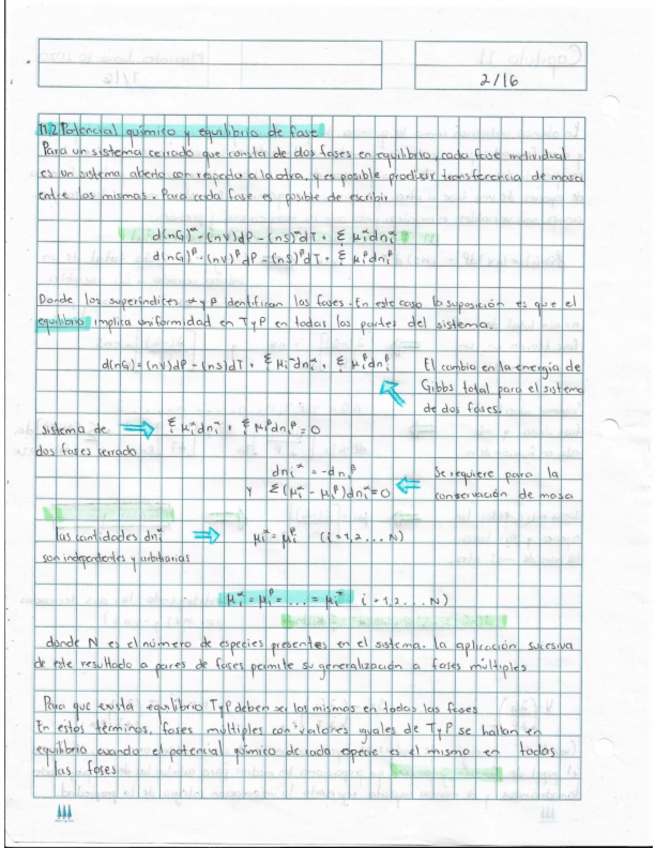 2/16
11.2 Potencial químico y equilibrio de fase
Para un sistema cerrado que consta de dos fases en equilibrio, cada fase individual
es un sistema abierto con respecto a la otra, y es posible producir transferencia de masa
entre las mismas. Para cada fase es posible de escribir
d(nG)^α = (nV)^α dP - (nS)^α dT + Σ μi^α dni^α
d(nG)^β = (nV)^β dP - (nS)^β dT + Σ μi^β dni^β
Donde los superíndices α y β identifican las fases. En este caso la suposición es que el
equilibrio implica uniformidad en T y P en todas las partes del sistema.
d(nG) = (nV)dP - (nS)dT + Σ μi^α dni^α + Σ μi^β dni^β
El cambio en la energía de
Gibbs total para el sistema
de dos fases.
sistema de
dos fases cerrado
Σ μi^α dni^α + Σ μi^β dni^β = 0
dni^α = -dni^β
y Σ(μi^α - μi^β)dni^α = 0
Se requiere para la
conservación de masa
las cantidades dni^α
son independientes y arbitrarias
μi^α = μi^β (i = 1,2 ... N)
μi^α = μi^β = .... = μi^π i = 1,2 ... N)
donde N es el número de especies presentes en el sistema. la aplicación sucesiva
de este resultado a pares de fases permite su generalización a fases múltiples
Para que exista equilibrio T y P deben ser las mismas en todas las fases
En estos términos, fases múltiples con valores iguales de T y P se hallan en
equilibrio cuando el potencial químico de cada especie es el mismo en todas
las fases